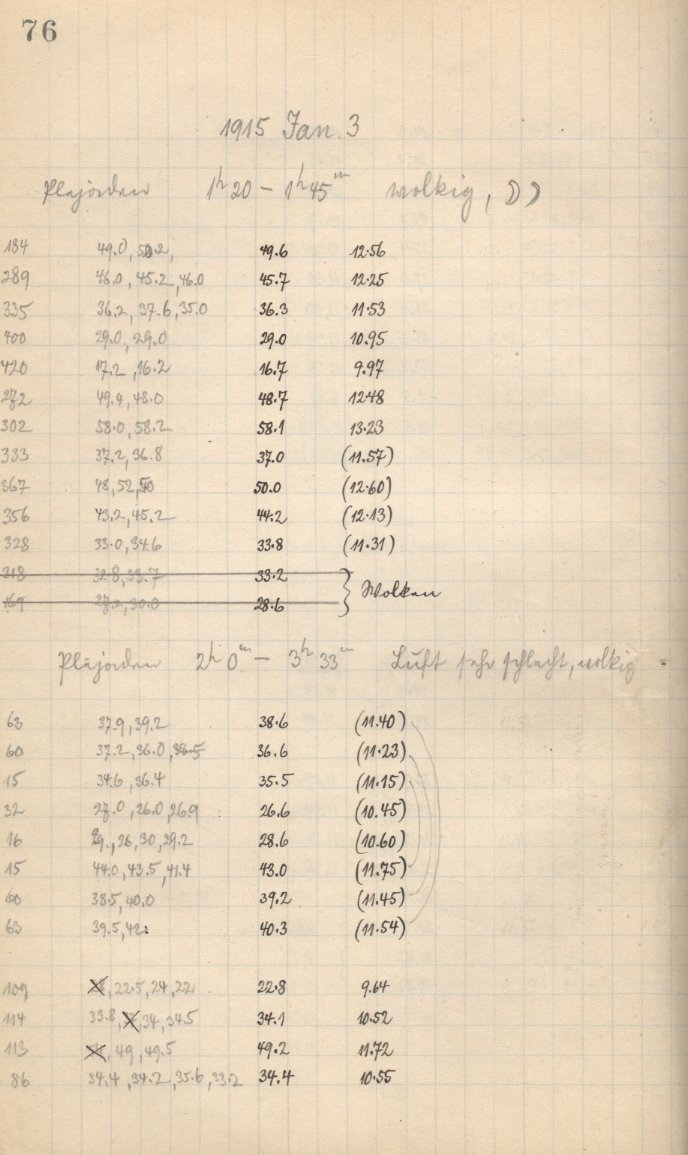 76
1915 Jan. 3
Plejaden 1h 20 – 1h 45m wolkig,
184 49.0, 50.2, 49.6 12.56
289 46.0, 45.2, 46.0 45.7 12.25
335 36.2, 37.6, 35.0 36.3 11.53
400 29.0, 29.0 29.0 10.95
420 17.2, 16.2 16.7 9.97
272 49.4, 48.0 48.7 12.48
302 58.0, 58.2 58.1 13.23
333 37.2, 36.8 37.0 (11.57)
367 48, 52, 50 50.0 (12.60)
356 43.2, 45.2 44.2 (12.13)
328 33.0, 34.6 33.8 (11.31)
318 32.8, 33.7 33.2 } Wolken
28.6
Plejaden 2h 0m – 3h 33m Luft sehr schlecht, wolkig
63 37.9, 39.2 38.6 (11.40)
60 37.2, 36.0, 36.6 (11.23)
15 34.6, 36.4 35.5 (11.15)
32 27.0, 26.0, 26.9 26.6 (10.45)
16 29., 26, 30, 29.2 28.6 (10.60)
15 44.0, 43.5, 41.4 43.0 (11.75)
60 38.5, 40.0 39.2 (11.45)
63 39.5, 42: 40.3 (11.54)
109 22.5, 24, 22 22.8 9.64
114 33.8, 34, 34.5 34.1 10.52
113 49, 49.5 49.2 11.72
86 34.4, 34.2, 35.6, 33.2 34.4 10.55